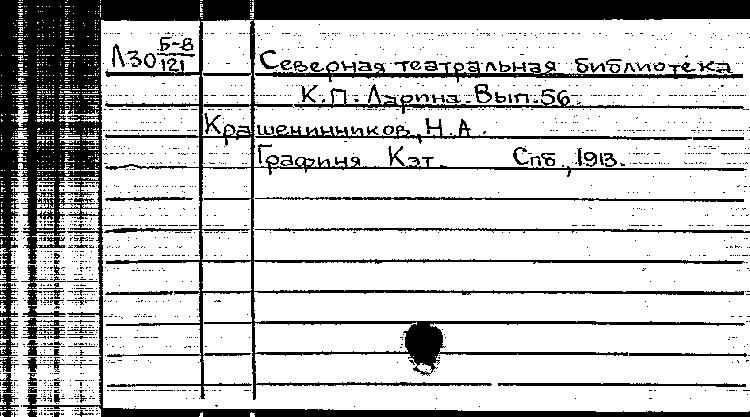 Л30 Б-8/121 Северная театральная библиотека
К.П. Ларина. Вып. 56.
Крашенинников, Н.А.
Графиня Кэт. Спб., 1913.